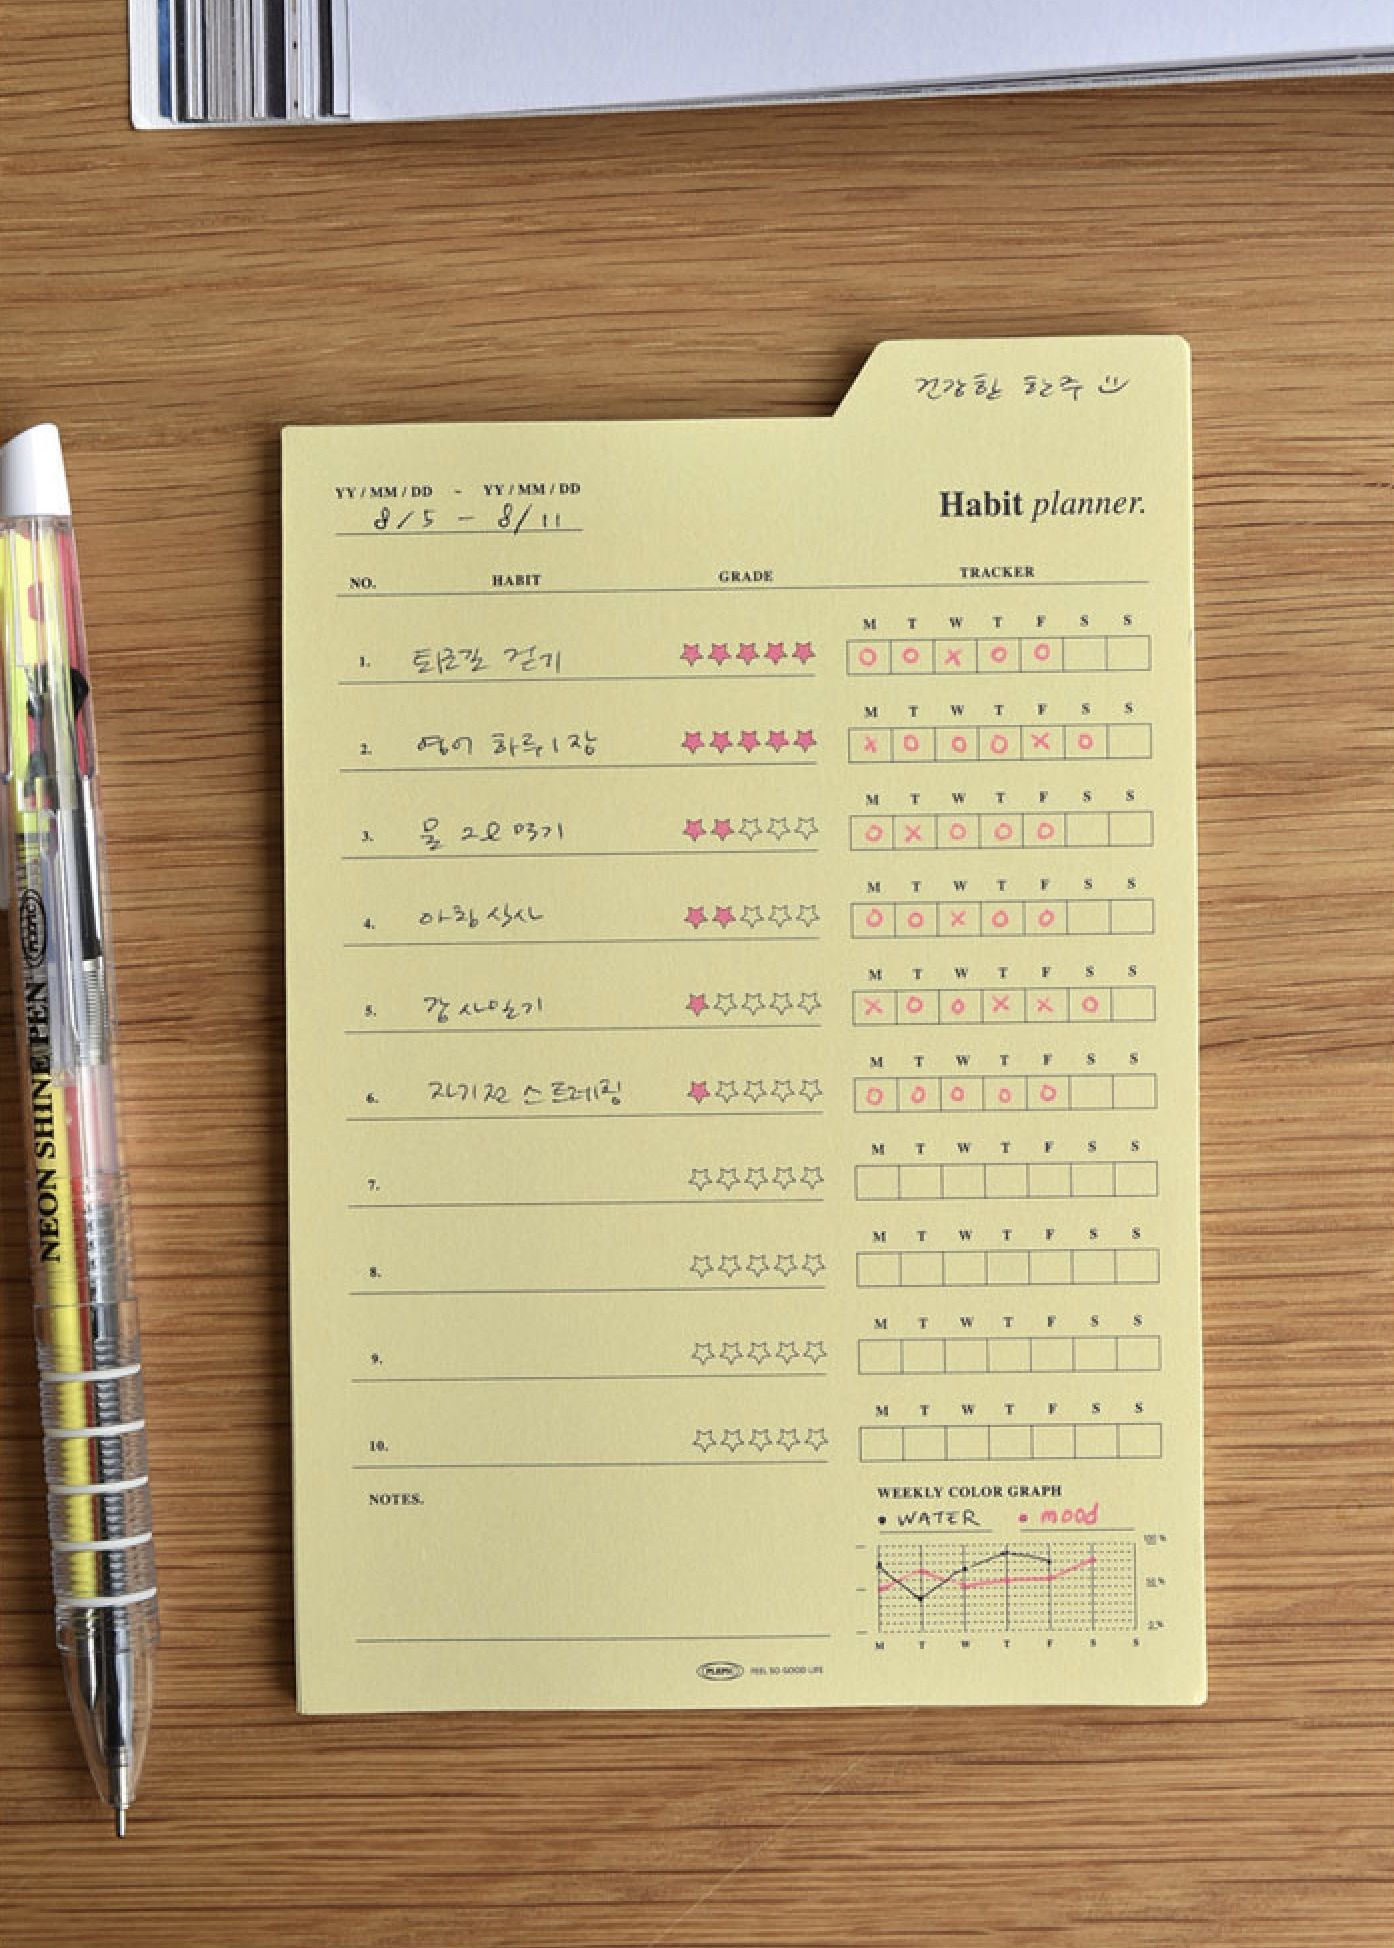 건강한 한주 :)
YY / MM / DD - YY / MM / DD
8/5 - 8/11
Habit planner.
NO. HABIT GRADE TRACKER
M T W T F S S
1. 퇴근길 걷기 ★★★★★ O O X O O
M T W T F S S
2. 영어 하루 1장 ★★★★★ X O O O X O
M T W T F S S
3. 물 2ℓ 먹기 ★★☆☆☆ O X O O O
M T W T F S S
4. 아침 식사 ★★☆☆☆ O O X O O
M T W T F S S
5. 감사일기 ★☆☆☆☆ X O O X X O
M T W T F S S
6. 자기전 스트레칭 ★☆☆☆☆ O O O O O
M T W T F S S
7. ☆☆☆☆☆
M T W T F S S
8. ☆☆☆☆☆
M T W T F S S
9. ☆☆☆☆☆
M T W T F S S
10. ☆☆☆☆☆
NOTES.
WEEKLY COLOR GRAPH
• WATER • mood
100 %
50 %
0 %
M T W T F S S
FEEL SO GOOD LIFE
NEON SHINE PEN